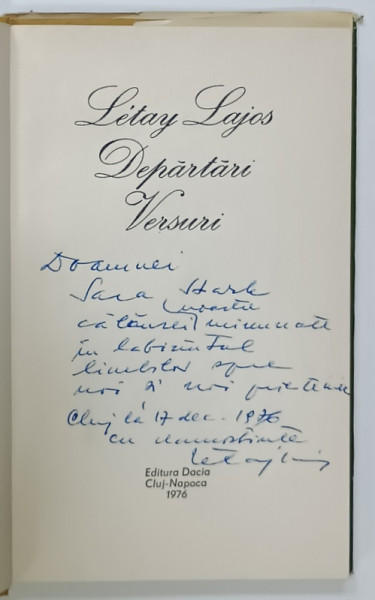 Létay Lajos
Depărtări
Versuri
Doamnei
Sara Stark
noastre
călăuzei minunate
în labirintul
limbilor spre
noi și noi prietenii
Cluj la 17 dec. 1976
cu recunoștință
Létay Lajos
Editura Dacia
Cluj-Napoca
1976